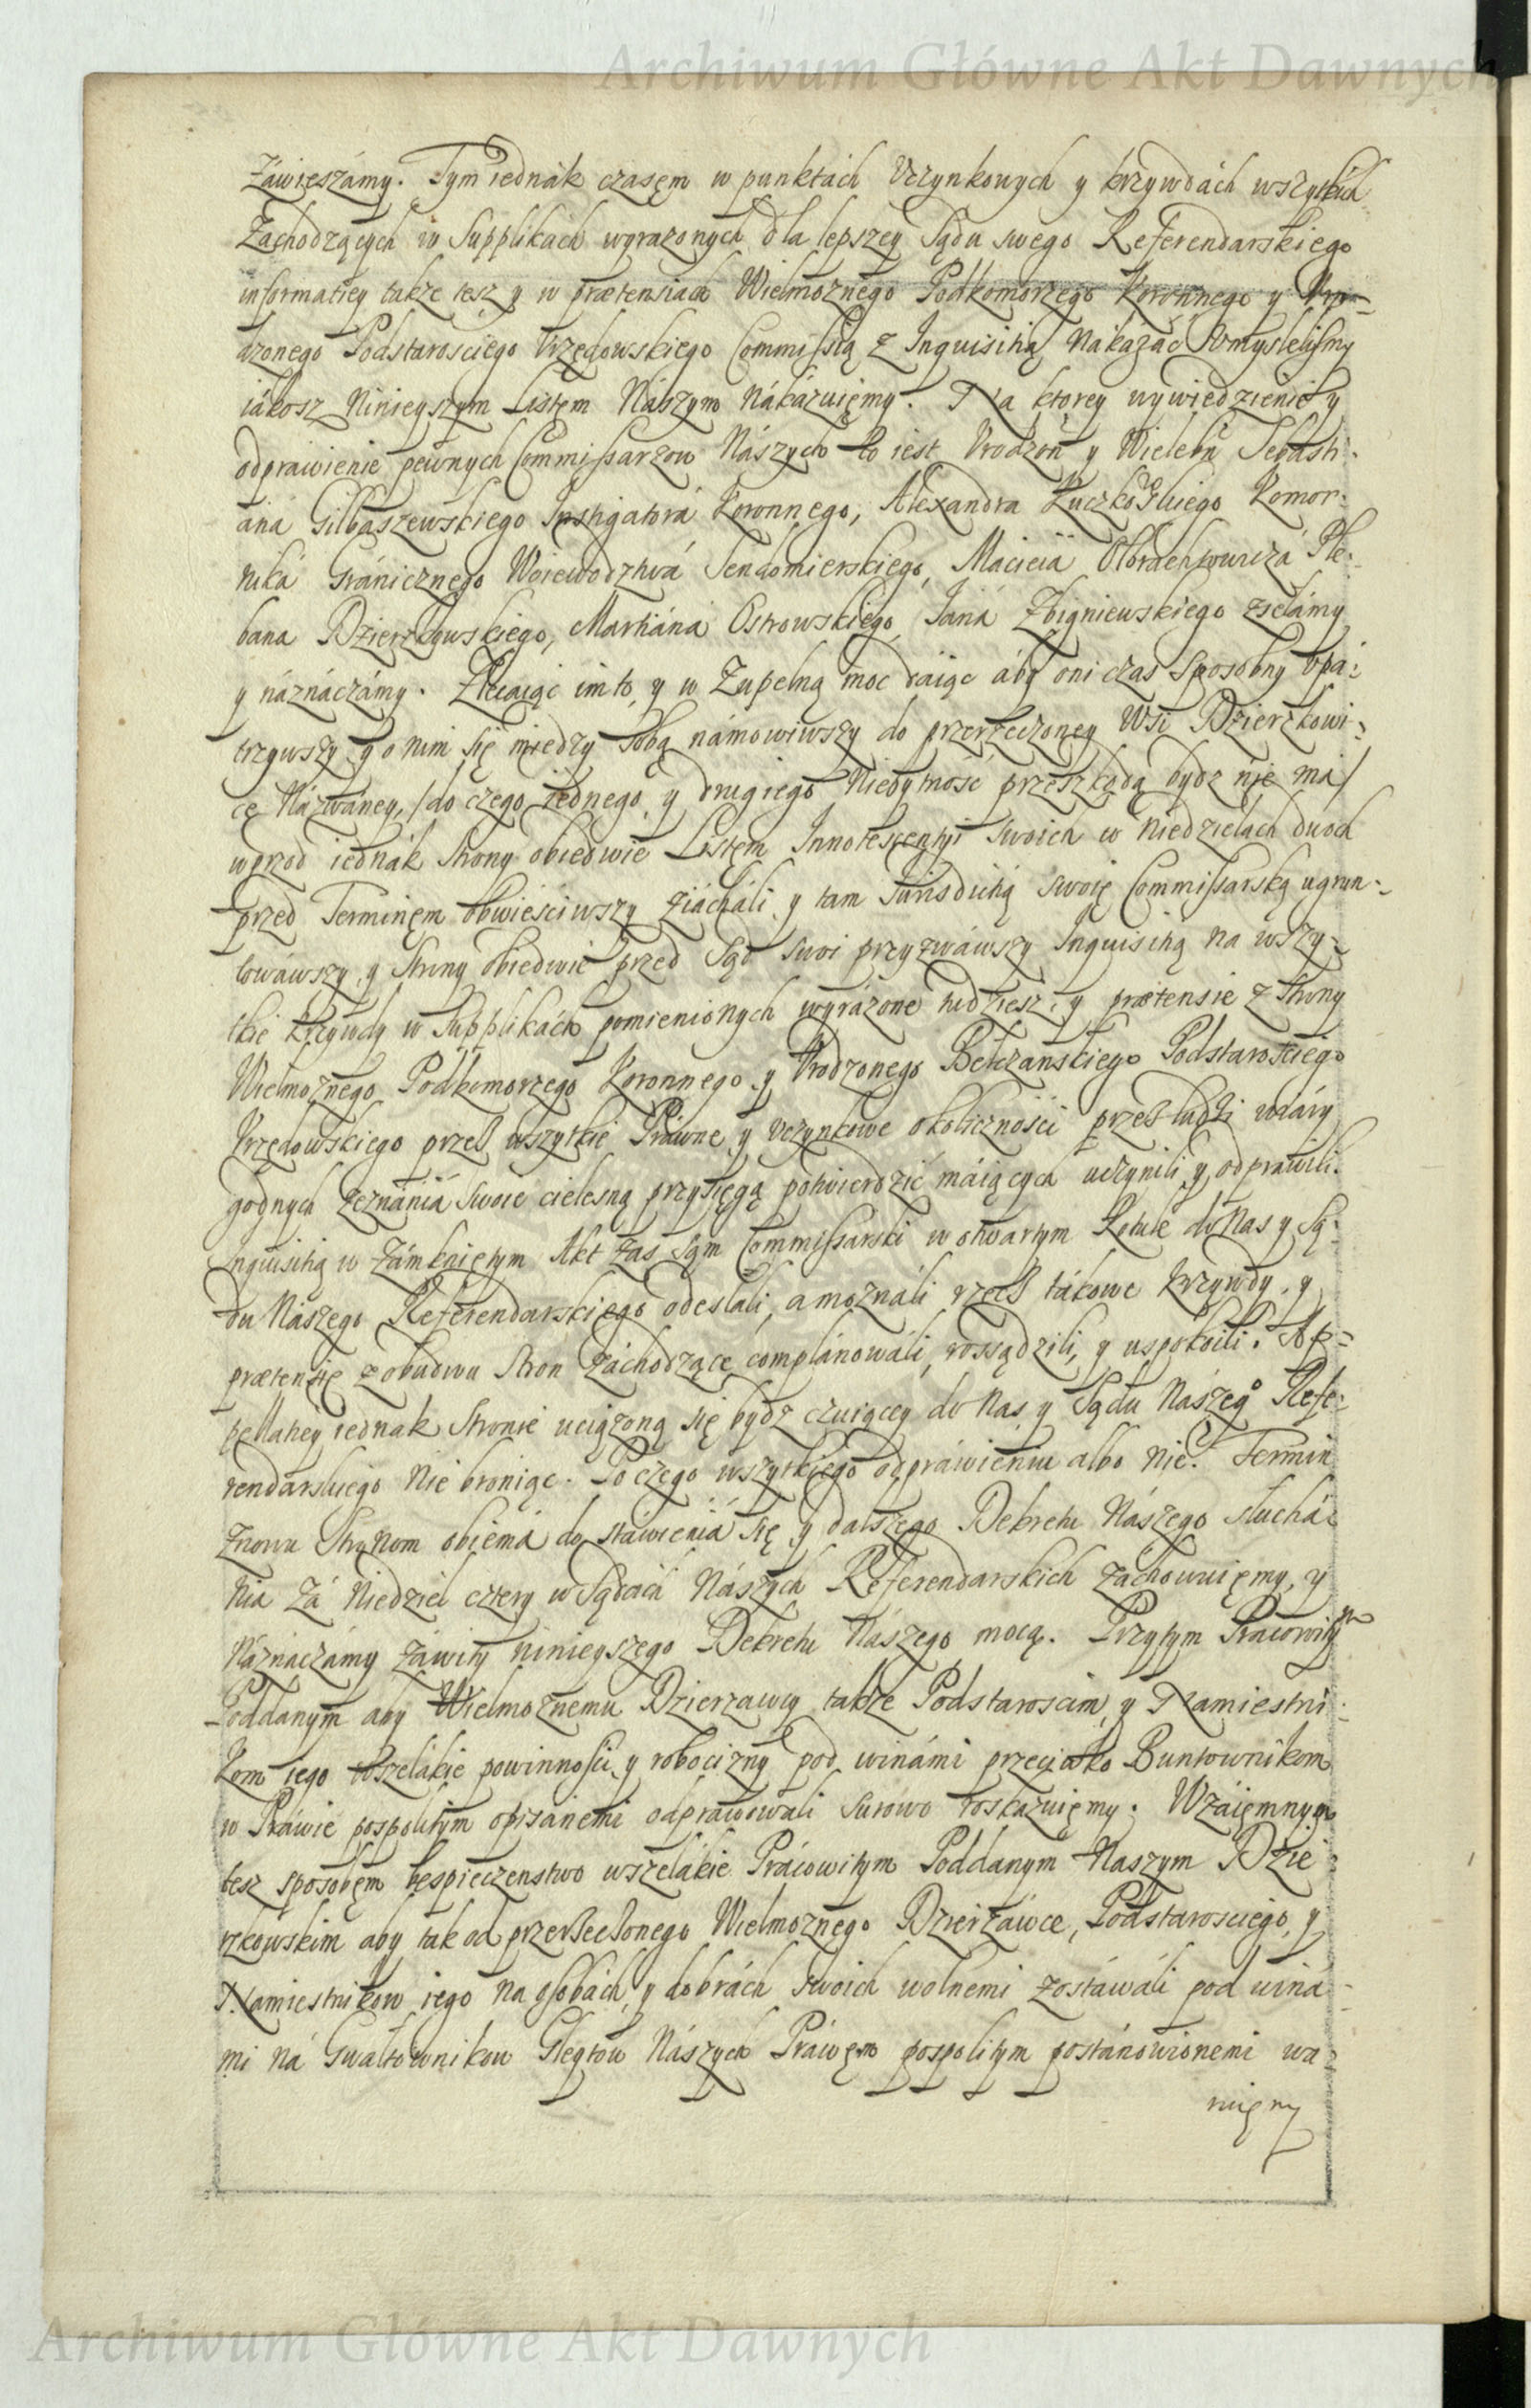 Archiwum Główne Akt Dawnych
Záwięszámy. Tym iednák czasęm w punktách Vczynkowych y krzywdách wszytkich
Záchodzących w Supplikách wyrazonych dla lepszey Sądu swego Referendarskiego
informatiey także tesz y w prætensiach Wielmoznego Podkomorzego Koronnego y Vro-
dzonego Podstarosciego Vrzędowskiego Commissią z Inquisitią Nákázáć Vmyslelismy
iákosz Ninieyszym Listęm Nászym Nákázuięmy. Na ktorey wywiedzienie y
odprawienie pewnych Commissarzow Nászych to iest Vrodzon y Wielebn Sebasti-
áná Gilbászewskiego Instigatorá Koronnego, Alexandra Łuczkoskiego Komor-
niká Gránicznego Woiewodztwá Sendomierskiego, Macieiá Olbrachtowiczá Ple-
bana Dzierzkowskiego, Martiáná Ostrowskiego, Janá Zbigniewskiego zsełámy
y náznáczámy. Zlecaiąc im to, y w Zupełną moc dáiąc áby oni czas sposobny vpá-
trzywszy y o nim się między sobą námowiwszy do przerzeczoney Wsi Dzierzkowi-
cę Názwáney, /do czego iednego y drugiego Niebytność przeszkodą bydz nie má/
wprzod iednák Strony obiedwie Listęm Innotescentyi swoich w Niedzielách dwoch
przed Terminęm obwieściwszy ziácháli y tam Jurisdictią swoię Commissarską ugrun-
towáwszy, y Strony obiedwie przed Sąd swoi przyzwáwszy Inquisitią na wszy-
tkie krzywdy w Supplikách pomienionych wyrázone tudziesz y prætensie z Strony
Wielmoznego Podkomorzego Koronnego y Vrodzonego Bełczanskiego Podstarosciego
Vrzędowskiego przes wszytkie Práwne y vczynkowe okoliczności przes ludzi wiáry
godnych zeznániá swoie cielesną przysięgą potwierdzić máiących uczynili y odpráwili.
Inquisitią w Zámkniętym Akt zas sąm Commissarski w otwartym Rotule do Nas y Są-
du Nászego Referendarskiego odesłali, a moználi rzecz tákowe krzywdy, y
prætensię z obudwu Stron záchodzącę complánowáli, rossądzili, y uspokoili. Ap-
pellatiey iednak Stronie uciązoną się bydz czuiącey do Nas y Sądu Nászego Refe-
rendarskiego Nie broniąc. Po czego wszytkiego odpráwieniu albo nie. Termin
znowu Stronom obiemá do stáwieniá się y dalszego Dekretu Nászego słuchá-
nia Zá Niedziel cztery w Sądách Nászych Referendarskich záchowuięmy, y
Náznáczámy záwity ninieyszego Dekretu Nászego mocą. Przytym Pracowitym
Poddanym aby Wielmoznemu Dzierzawcy także Podstaroscim, y Namiestni-
kom iego wszelákie powinności y robocizny pod winámi przeciwko Buntownikom
w Práwie pospolitym opisánemi odpráwowali surowo roskázuięmy. Wzáięmnym
tesz sposobęm bespieczenstwo wszelákie Prácowitym Poddanym Naszym Dzie-
rzkowskim aby tak od przerzeczonego Wielmoznego Dzierzáwce, Podstarosciego, y
Namiestnikow iego na osobách y dobrách swoich wolnemi zostáwáli pod winá-
mi ná Gwałtownikow Gleytow Nászych Práwęm pospolitym postánowionemi wa-
ruięmy
Archiwum Główne Akt Dawnych